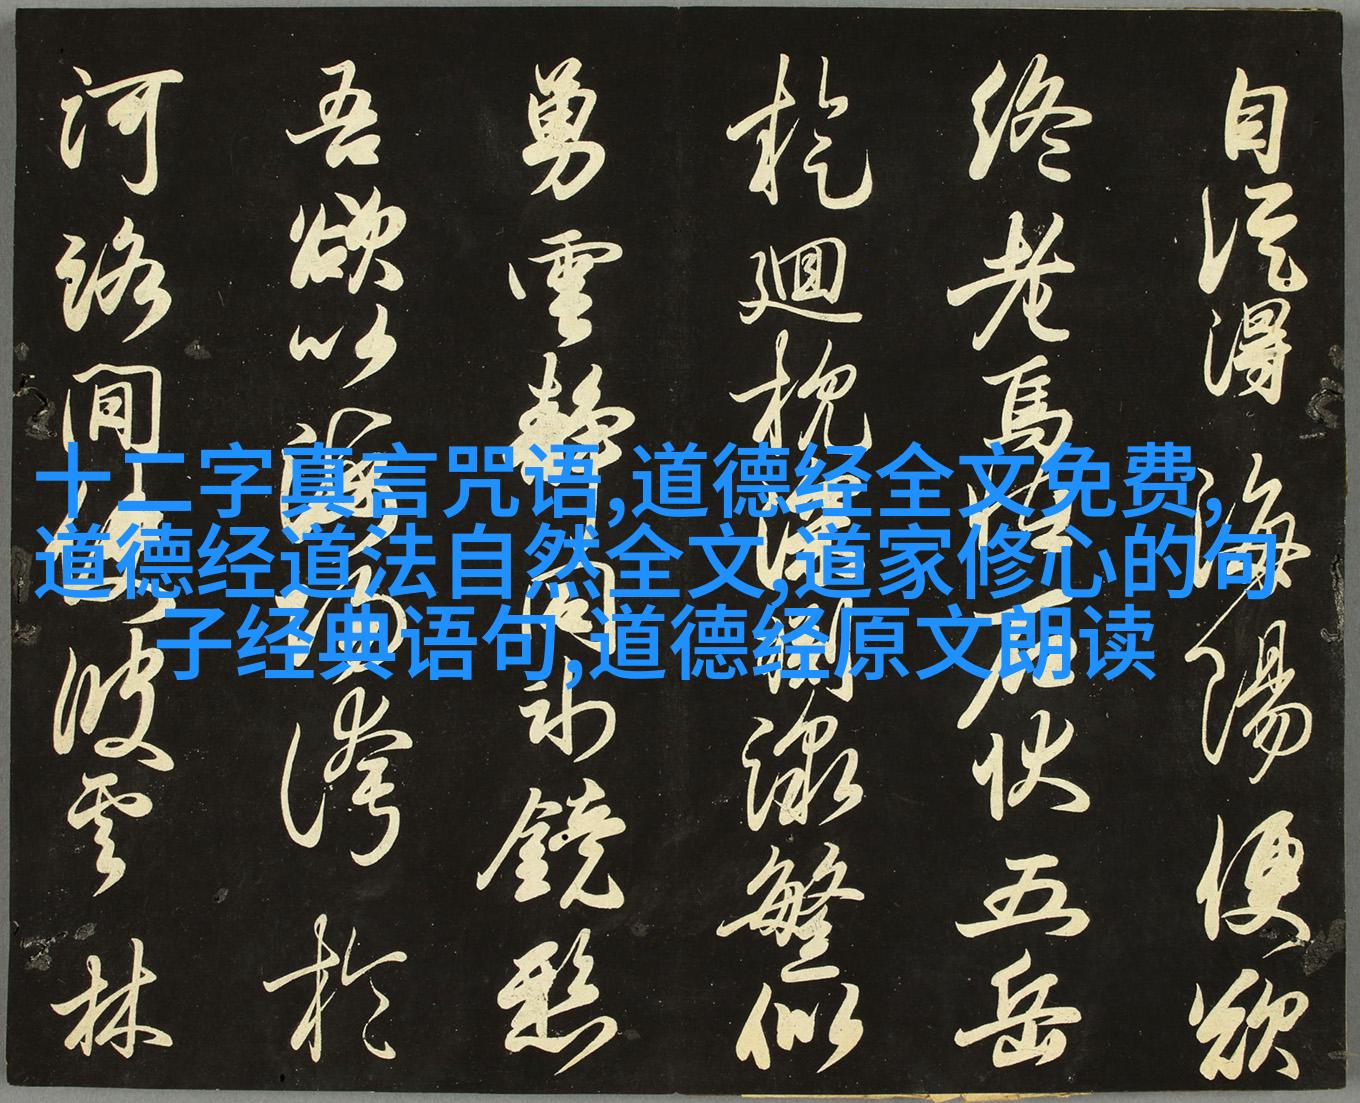 自得海陽便欲
終老焉石伏五岳
迴枕繁似
勇雲靜鏡愁
吾欲以誇於
河洛間林
十二字真言咒语,道德经全文免费,
道德经道法自然全文,道家修心的句
子经典语句,道德经原文朗读